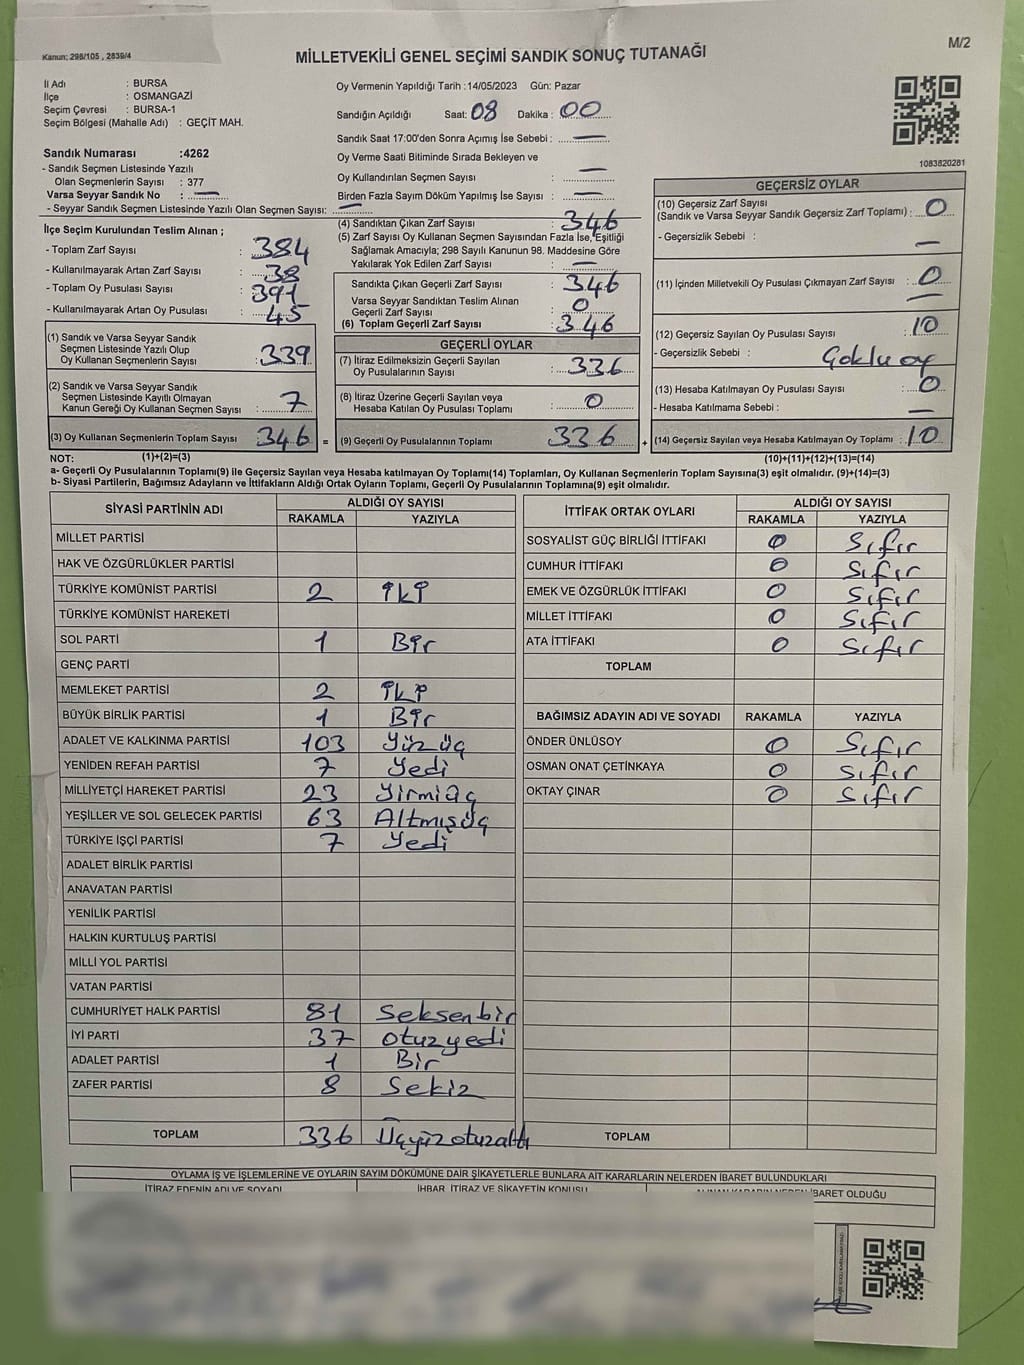 Kanun: 298/105 , 2839/4
M/2
MİLLETVEKİLİ GENEL SEÇİMİ SANDIK SONUÇ TUTANAĞI
İl Adı : BURSA
İlçe : OSMANGAZİ
Seçim Çevresi : BURSA-1
Seçim Bölgesi (Mahalle Adı) : GEÇİT MAH.
Sandık Numarası :4262
- Sandık Seçmen Listesinde Yazılı
Olan Seçmenlerin Sayısı : 377
Varsa Seyyar Sandık No : —
- Seyyar Sandık Seçmen Listesinde Yazılı Olan Seçmen Sayısı: —
Oy Vermenin Yapıldığı Tarih :14/05/2023 Gün: Pazar
Sandığın Açıldığı Saat: 08 Dakika : 00
Sandık Saat 17:00'den Sonra Açımış İse Sebebi : —
Oy Verme Saati Bitiminde Sırada Bekleyen ve
Oy Kullandırılan Seçmen Sayısı : —
Birden Fazla Sayım Döküm Yapılmış İse Sayısı : —
1083820281
İlçe Seçim Kurulundan Teslim Alınan ;
- Toplam Zarf Sayısı : 384
- Kullanılmayarak Artan Zarf Sayısı : 38
- Toplam Oy Pusulası Sayısı : 391
- Kullanılmayarak Artan Oy Pusulası : 45
(1) Sandık ve Varsa Seyyar Sandık
Seçmen Listesinde Yazılı Olup
Oy Kullanan Seçmenlerin Sayısı : 339
(2) Sandık ve Varsa Seyyar Sandık
Seçmen Listesinde Kayıtlı Olmayan
Kanun Gereği Oy Kullanan Seçmen Sayısı : 7
(3) Oy Kullanan Seçmenlerin Toplam Sayısı 346 =
(4) Sandıktan Çıkan Zarf Sayısı : 346
(5) Zarf Sayısı Oy Kullanan Seçmen Sayısından Fazla İse, Eşitliği
Sağlamak Amacıyla; 298 Sayılı Kanunun 98. Maddesine Göre
Yakılarak Yok Edilen Zarf Sayısı : —
Sandıkta Çıkan Geçerli Zarf Sayısı : 346
Varsa Seyyar Sandıktan Teslim Alınan
Geçerli Zarf Sayısı : 0
(6) Toplam Geçerli Zarf Sayısı : 346
GEÇERLİ OYLAR
(7) İtiraz Edilmeksizin Geçerli Sayılan
Oy Pusulalarının Sayısı : 336
(8) İtiraz Üzerine Geçerli Sayılan veya
Hesaba Katılan Oy Pusulası Toplamı : 0
(9) Geçerli Oy Pusulalarının Toplamı 336 +
GEÇERSİZ OYLAR
(10) Geçersiz Zarf Sayısı
(Sandık ve Varsa Seyyar Sandık Geçersiz Zarf Toplamı) : 0
- Geçersizlik Sebebi : —
(11) İçinden Milletvekili Oy Pusulası Çıkmayan Zarf Sayısı : 0
—
(12) Geçersiz Sayılan Oy Pusulası Sayısı : 10
- Geçersizlik Sebebi : Çoklu oy
(13) Hesaba Katılmayan Oy Pusulası Sayısı : 0
- Hesaba Katılmama Sebebi : —
(14) Geçersiz Sayılan veya Hesaba Katılmayan Oy Toplamı : 10
NOT: (1)+(2)=(3) (10)+(11)+(12)+(13)=(14)
a- Geçerli Oy Pusulalarının Toplamı(9) ile Geçersiz Sayılan veya Hesaba katılmayan Oy Toplamı(14) Toplamları, Oy Kullanan Seçmenlerin Toplam Sayısına(3) eşit olmalıdır. (9)+(14)=(3)
b- Siyasi Partilerin, Bağımsız Adayların ve İttifakların Aldığı Ortak Oyların Toplamı, Geçerli Oy Pusulalarının Toplamına(9) eşit olmalıdır.
SİYASİ PARTİNİN ADI ALDIĞI OY SAYISI
RAKAMLA YAZIYLA
MİLLET PARTİSİ
HAK VE ÖZGÜRLÜKLER PARTİSİ
TÜRKİYE KOMÜNİST PARTİSİ 2 İki
TÜRKİYE KOMÜNİST HAREKETİ
SOL PARTİ 1 Bir
GENÇ PARTİ
MEMLEKET PARTİSİ 2 İki
BÜYÜK BİRLİK PARTİSİ 1 Bir
ADALET VE KALKINMA PARTİSİ 103 Yüzüç
YENİDEN REFAH PARTİSİ 7 Yedi
MİLLİYETÇİ HAREKET PARTİSİ 23 Yirmiüç
YEŞİLLER VE SOL GELECEK PARTİSİ 63 Altmışüç
TÜRKİYE İŞÇİ PARTİSİ 7 Yedi
ADALET BİRLİK PARTİSİ
ANAVATAN PARTİSİ
YENİLİK PARTİSİ
HALKIN KURTULUŞ PARTİSİ
MİLLİ YOL PARTİSİ
VATAN PARTİSİ
CUMHURİYET HALK PARTİSİ 81 Seksenbir
İYİ PARTİ 37 otuzyedi
ADALET PARTİSİ 1 Bir
ZAFER PARTİSİ 8 Sekiz
TOPLAM 336 Üçyüzotuzaltı
İTTİFAK ORTAK OYLARI ALDIĞI OY SAYISI
RAKAMLA YAZIYLA
SOSYALİST GÜÇ BİRLİĞİ İTTİFAKI 0 Sıfır
CUMHUR İTTİFAKI 0 Sıfır
EMEK VE ÖZGÜRLÜK İTTİFAKI 0 Sıfır
MİLLET İTTİFAKI 0 Sıfır
ATA İTTİFAKI 0 Sıfır
TOPLAM
BAĞIMSIZ ADAYIN ADI VE SOYADI RAKAMLA YAZIYLA
ÖNDER ÜNLÜSOY 0 Sıfır
OSMAN ONAT ÇETİNKAYA 0 Sıfır
OKTAY ÇINAR 0 Sıfır
TOPLAM
OYLAMA İŞ VE İŞLEMLERİNE VE OYLARIN SAYIM DÖKÜMÜNE DAİR ŞİKAYETLERLE BUNLARA AİT KARARLARIN NELERDEN İBARET BULUNDUKLARI
İTİRAZ EDENİN ADI VE SOYADI İHBAR, İTİRAZ VE ŞİKAYETİN KONUSU İBARET OLDUĞU